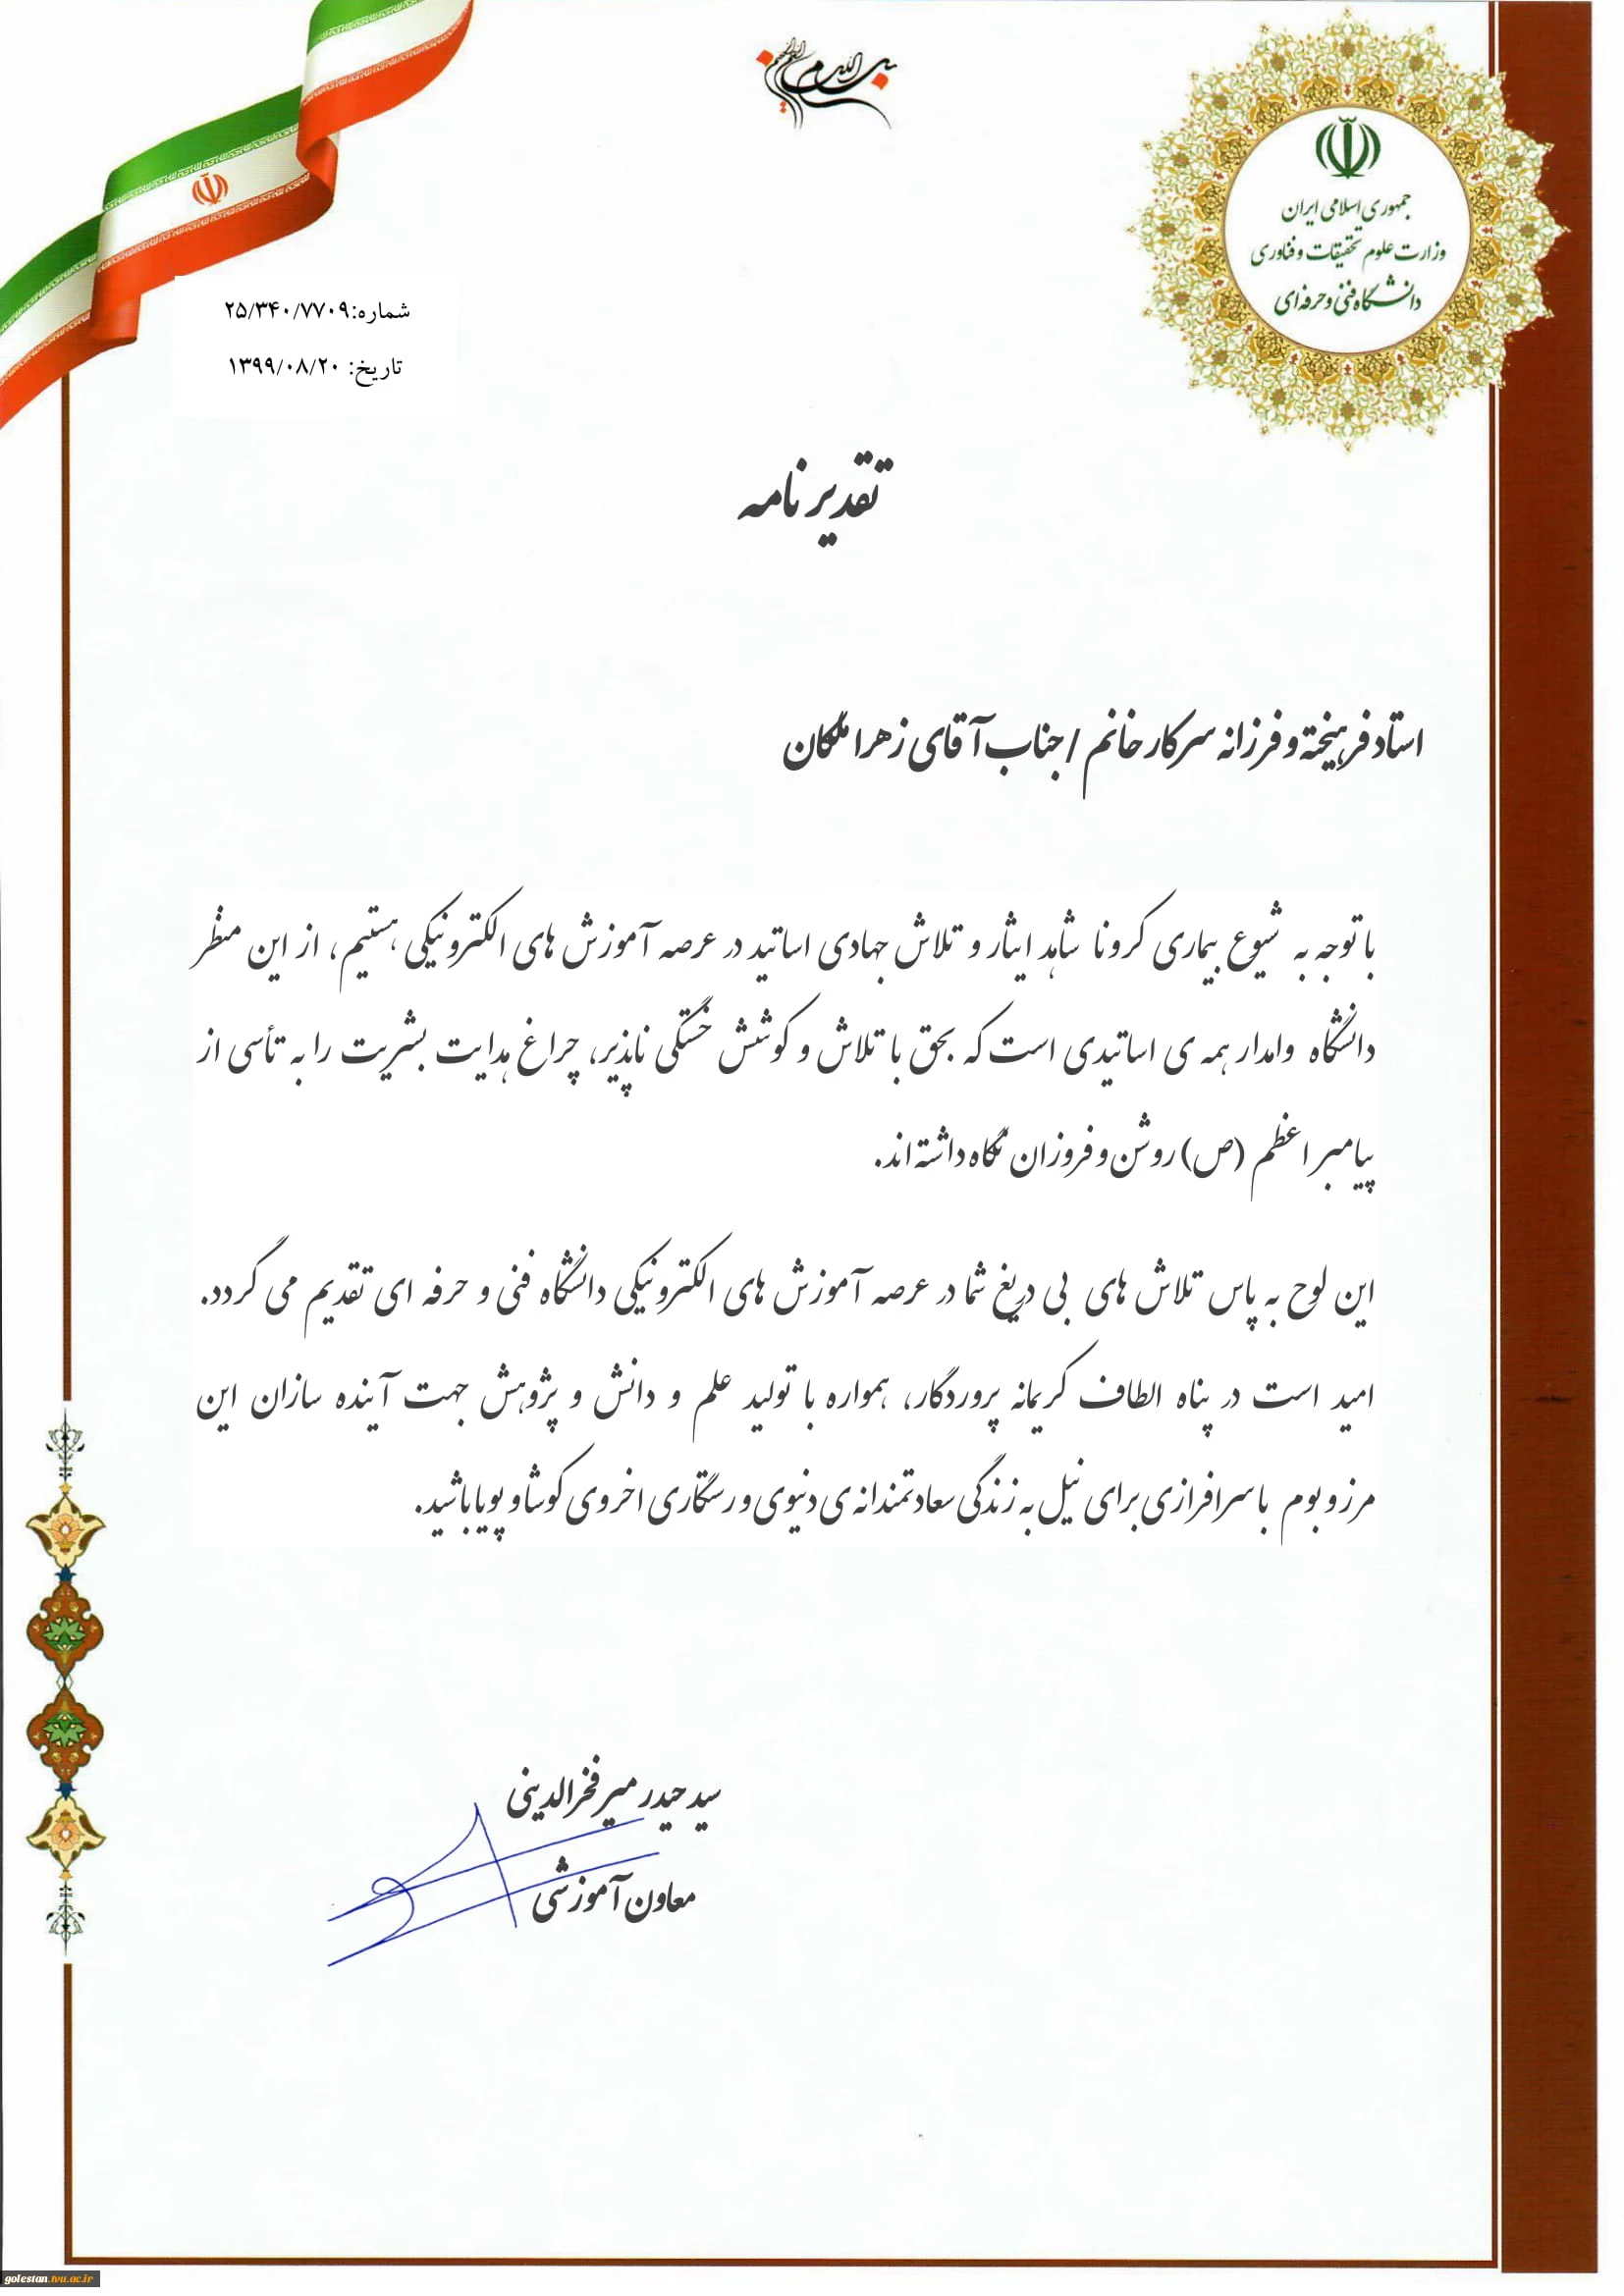 بسم الله الرحمن الرحیم
جمهوری اسلامی ایران
وزارت علوم تحقیقات و فناوری
دانشگاه فنی و حرفه‌ای
شماره:۲۵/۳۴۰/۷۷۰۹
تاریخ: ۱۳۹۹/۰۸/۲۰
تقدیر نامه
استاد فرهیخته و فرزانه سرکار خانم / جناب آقای زهرا ملکان
با توجه به شیوع بیماری کرونا شاهد ایثار و تلاش جهادی اساتید در عرصه آموزش های الکترونیکی هستیم، از این منظر
دانشگاه وامدار همه ی اساتیدی است که بحق با تلاش و کوشش خستگی ناپذیر، چراغ هدایت بشریت را به تأسی از
پیامبر اعظم (ص) روشن و فروزان نگاه داشته اند.
این لوح به پاس تلاش های بی دریغ شما در عرصه آموزش های الکترونیکی دانشگاه فنی و حرفه ای تقدیم می گردد.
امید است در پناه الطاف کریمانه پروردگار، همواره با تولید علم و دانش و پژوهش جهت آینده سازان این
مرز و بوم با سرافرازی برای نیل به زندگی سعادتمندانه ی دنیوی و رستگاری اخروی کوشا و پویا باشید.
سید حیدر میرفخرالدینی
معاون آموزشی
golestan.tvu.ac.ir